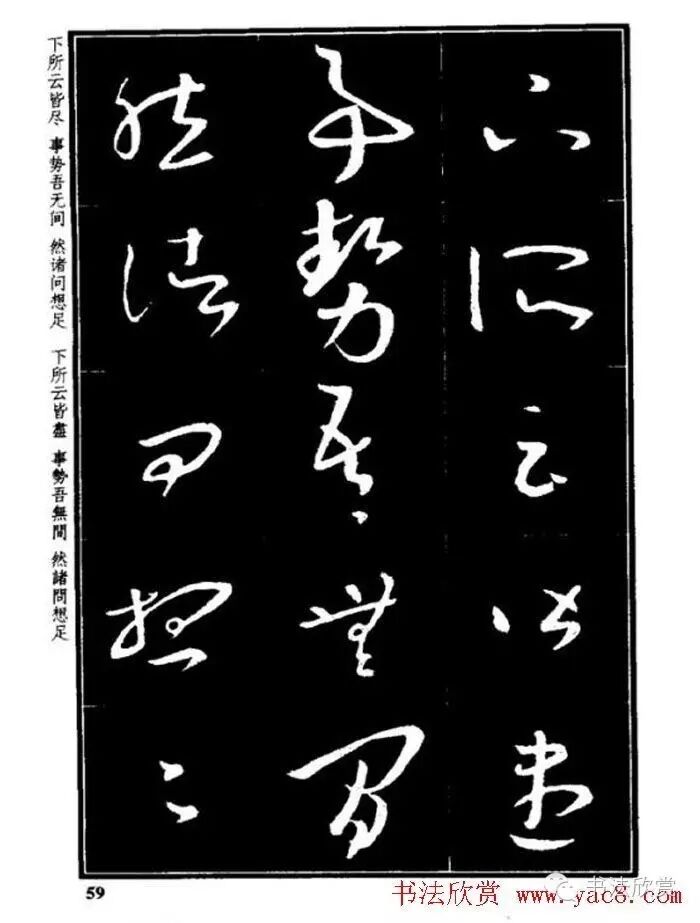 下所云皆盡
事勢吾無間
然諸問想足
下所云皆尽 事势吾无间 然诸问想足 下所云皆盡 事勢吾無間 然諸問想足
59
书法欣赏 www.yac8.com
书法欣赏